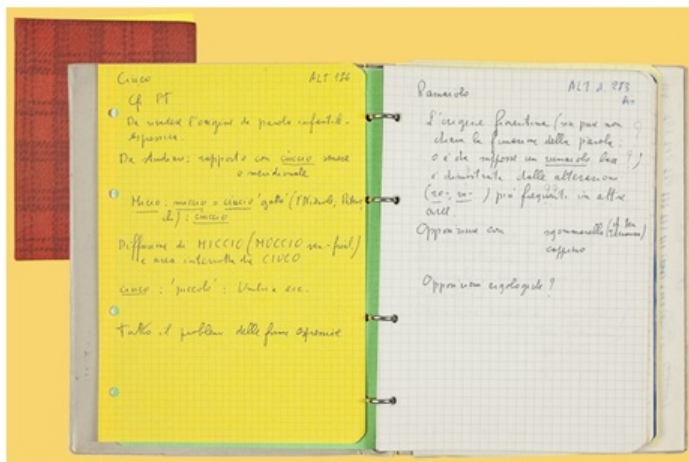 Ciuco ALT 126
Cf PT
Da vedere l'origine di parola infantile-
espressiva.
Da studiare: rapporto con ciuccio senese
e meridionale
Micio, miccio = ciuccio 'gatto'
: ciuccio
Diffusione di MICCIO (MUCCIO
e area interrotta di CIUCO
ciuco: 'piccolo': Umbria ecc.
tutto il problema delle forme espressive
Ramaiolo ALT d. 283
L'origine fiorentina (sia pur non
chiara la formazione della parola:
o è da supporre un ramaiolo
è dimostrata dalle alterazioni
(ro-, ) più frequenti in altre
aree.
Opposizione con sgommarello
coppino
Opposizione ergologica?